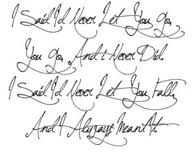 I Said I'd Never Let You Go,
You Go, And I Never Did.
I Said I'd Never Let You Fall,
And I Always Meant It.